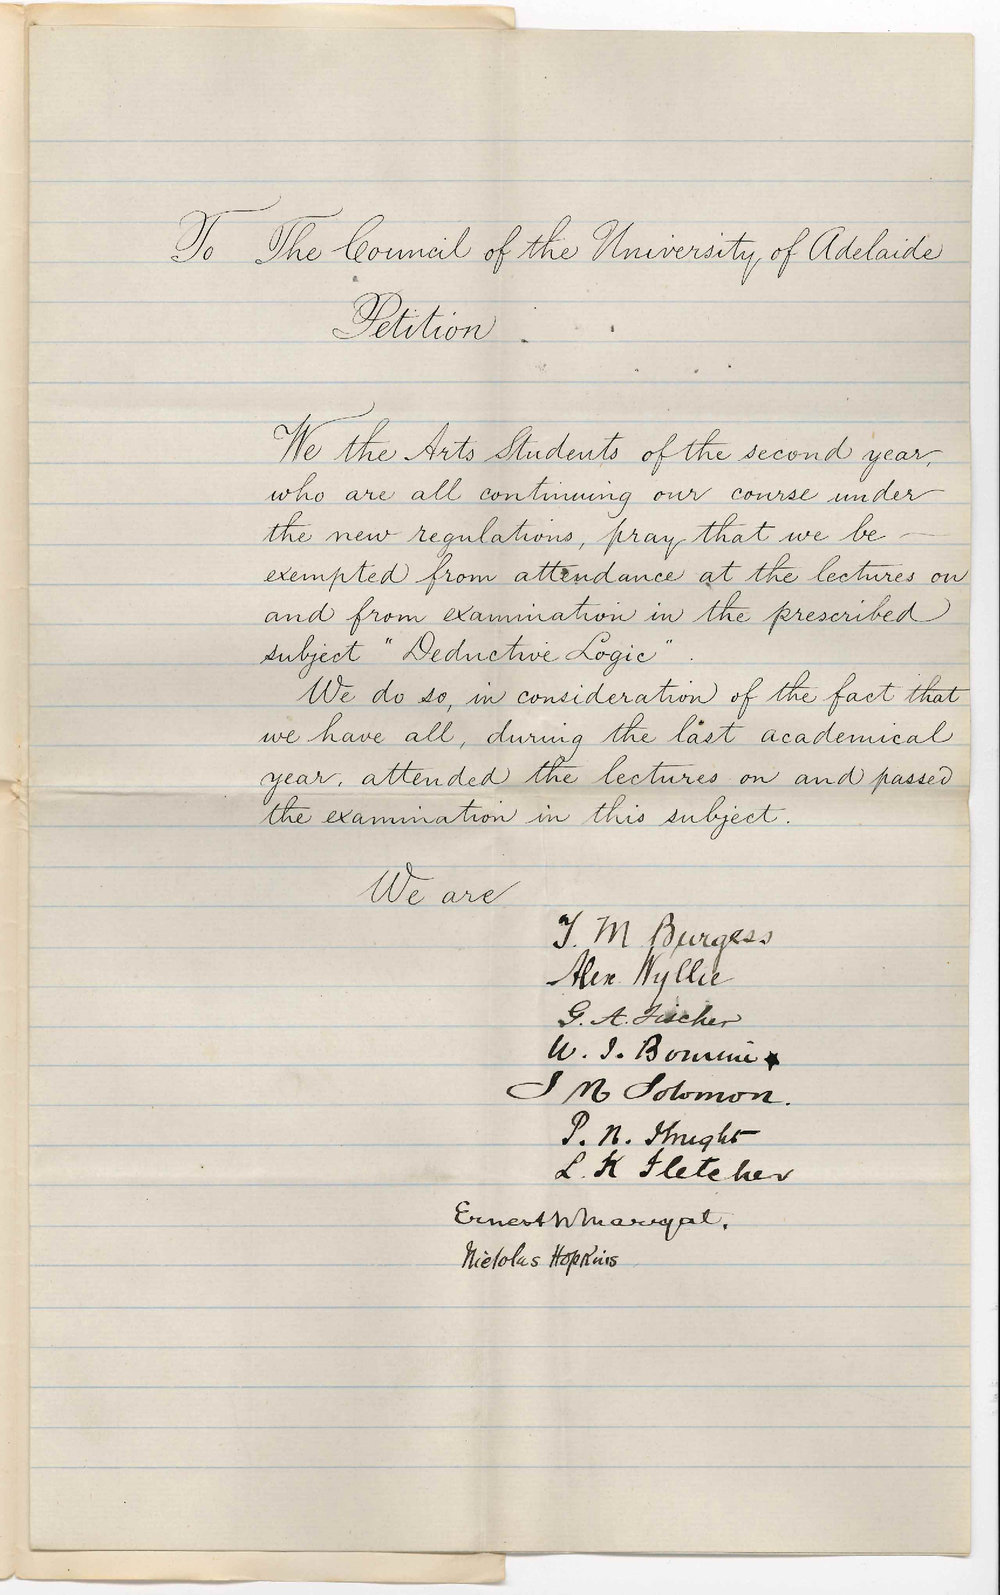 To The Council of the University of Adelaide
Petition
We the Arts Students of the second year,
who are all continuing our course under
the new regulations, pray that we be
exempted from attendance at the lectures on
and from examination in the prescribed
subject "Deductive Logic".
We do so, in consideration of the fact that
we have all, during the last academical
year, attended the lectures on and passed
the examination in this subject.
We are
T. M Burgess
Alex Wyllie
G. A. Fischer
W. J.
J N Solomon.
P. N.
L. K Fletcher
Ernest W Marryat.
Nicholas Hopkins